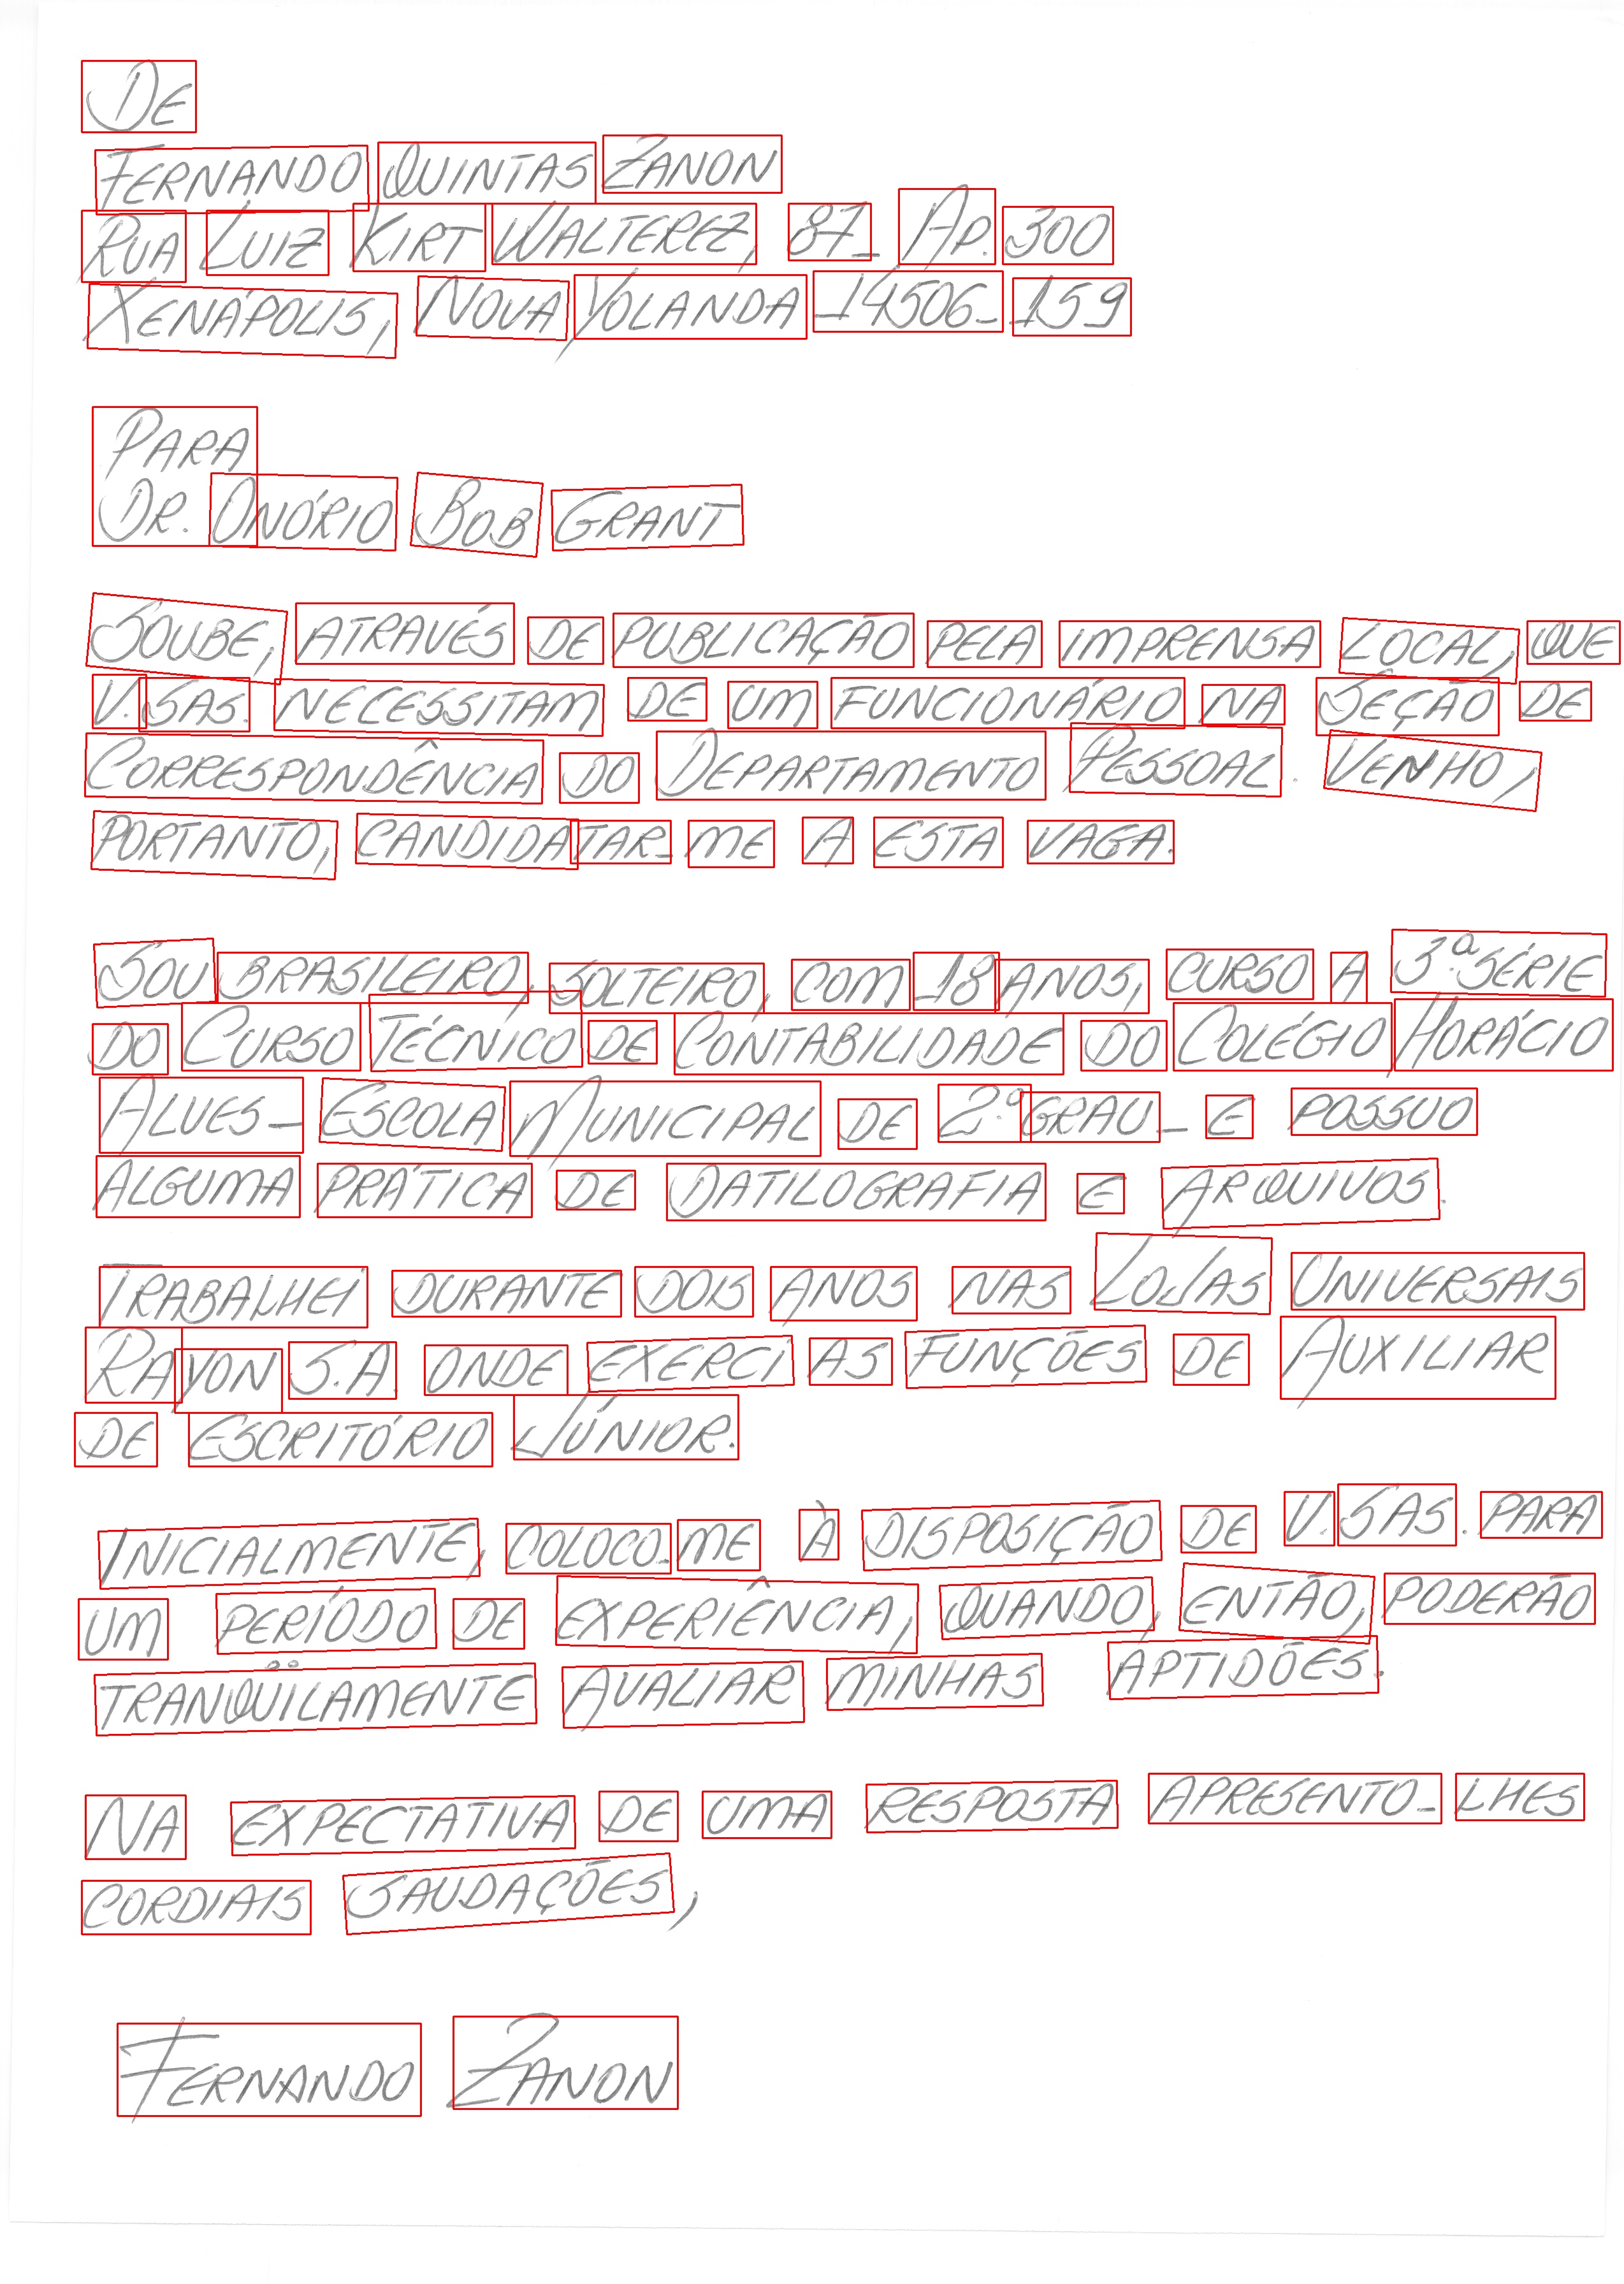 De
Fernando Quintas Zanon
Rua Luiz Kirt Walterez, 87_ Ap. 300
Xenápolis, Nova Yolanda _ 14506_159
Para
Dr. Onório Bob Grant
Soube, através de publicação pela imprensa local, que
V.Sas. necessitam de um funcionário na Seção de
Correspondência do Departamento Pessoal. Venho,
portanto, candidatar_me a esta vaga.
Sou brasileiro, solteiro, com 18 anos, curso a 3ª série
do Curso Técnico de Contabilidade do Colégio Horácio
Alves _ Escola Municipal de 2º grau _ e possuo
alguma prática de datilografia e arquivos.
Trabalhei durante dois anos nas Lojas Universais
Rayon S.A. onde exerci as funções de Auxiliar
de Escritório Júnior.
Inicialmente, coloco_me à disposição de V.Sas. para
um período de experiência, quando, então, poderão
tranqüilamente avaliar minhas aptidões.
Na expectativa de uma resposta apresento_lhes
cordiais saudações,
Fernando Zanon